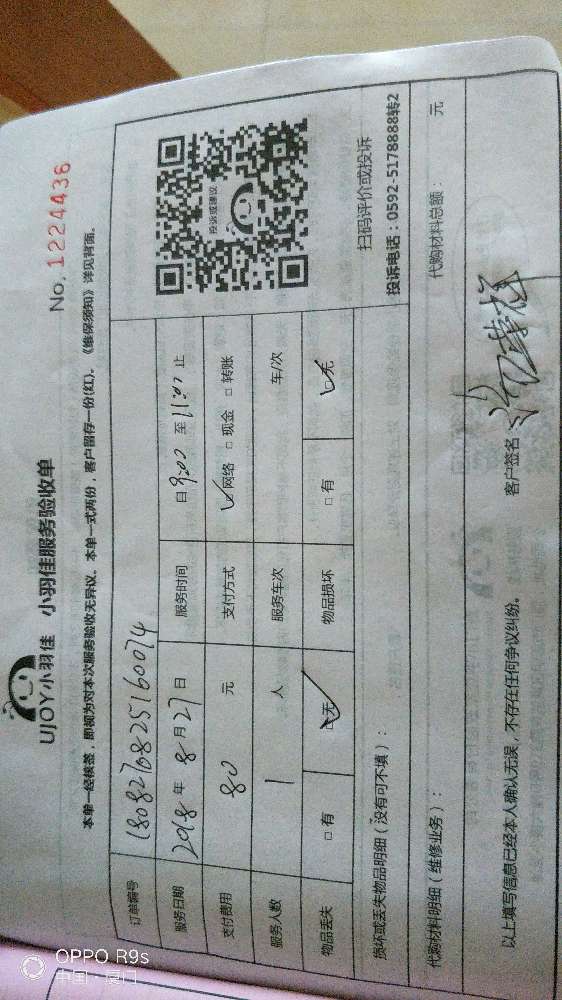 UJOY小羽佳 小羽佳服务验收单
No. 1224436
本单一经核签，即视为对本次服务验收无异议。本单一式两份，客户留存一份(红)。《维保须知》详见背面。
订单编号 1808276825160074
服务日期 2018 年 8 月 27 日 服务时间 日 9:00 至 11:01 止
支付费用 80 元 支付方式 ✓网络 □ 现金 □ 转账
服务人数 1 人 服务车次 车/次
物品丢失 □ 有 ✓无 物品损坏 □ 有 ✓无
投诉或建议
扫码评价或投诉
投诉电话：0592-5178888转2
损坏或丢失物品明细（没有可不填）：
代购材料明细（维修业务）： 代购材料总额： 元
以上填写信息已经本人确认无误，不存在任何争议纠纷。 客户签名
OPPO R9s
中国·厦门